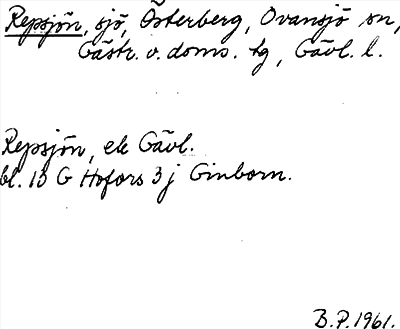 Repsjön, sjö, Österberg, Ovansjö sn,
Gästr. v. doms. tg, Gävl. l.
Repsjön, ek Gävl.
bl. 13 G Hofors 3 j Ginborn.
B.P. 1961.